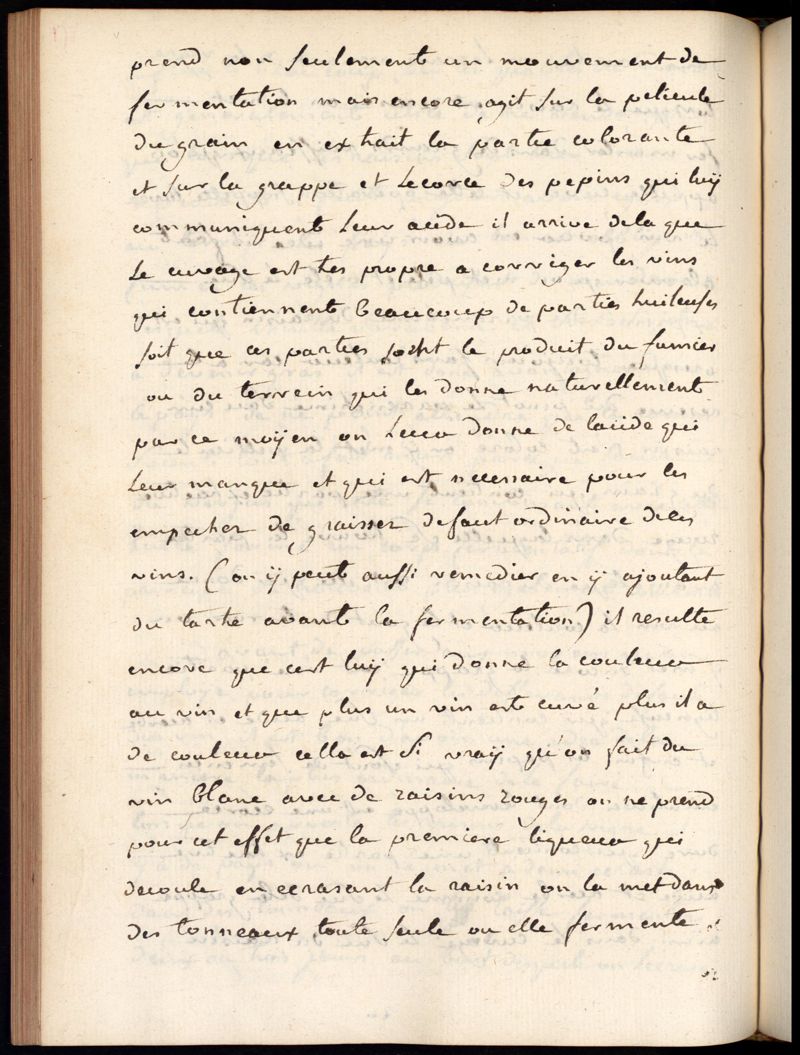 prend non seulement un mouvement de
fermentation mais encore agit sur la pelicule
du grain en extrait la partie colorante
et sur la grappe et Lecorce des pepins qui luÿ
communiquent Leur acide il arrive dela que
Le cuvage est tres propre a corriger les vins
qui contiennent beaucoup de parties huileuses
soit que ces parties soient le produit du fumier
ou du terrein qui les donne naturellement
par ce moÿen on Leur donne de lacide qui
Leur manque et qui est necessaire pour les
empecher de graisser defaut ordinaire de ces
vins. (on ÿ peut aussi remedier en ÿ ajoutant
du tartre avant la fermentation) il resulte
encore que cest luÿ qui donne la couleur
au vin et que plus un vin est cuvé plus il a
de couleur cella est si vraÿ qu'on fait du
vin blanc avec de raisins rouges on ne prend
pour cet effet que la premiere liqueur qui
decoule en ecrasant la raisin on la met dans
des tonneaux toute seule ou elle fermente